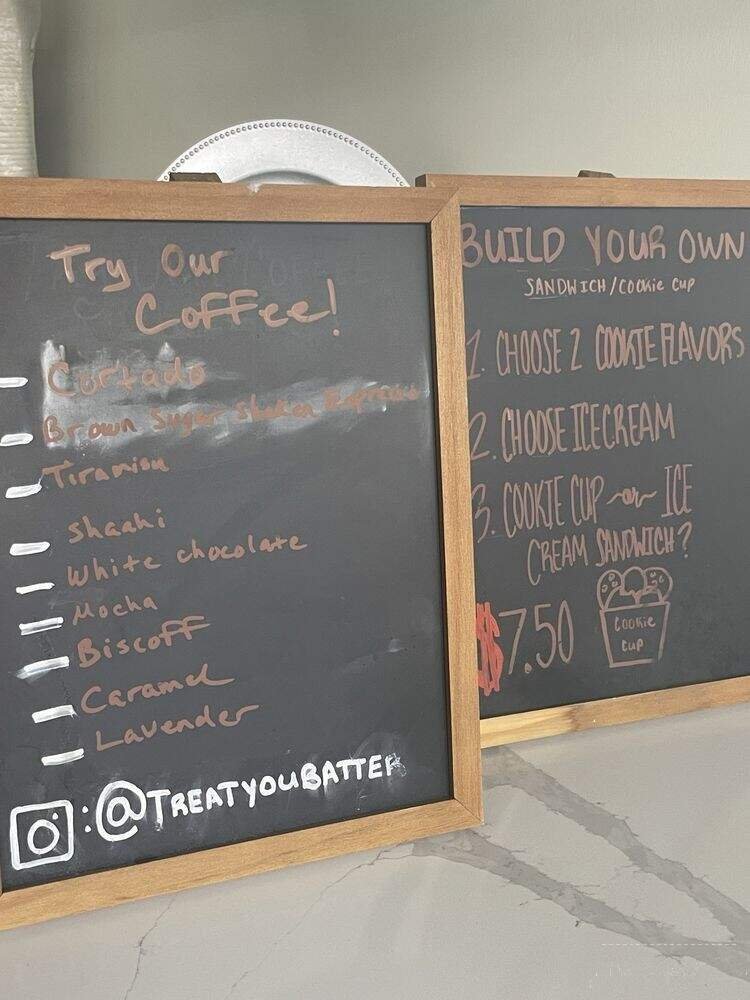 Try Our
Coffee!
Cortado
Brown Sugar Shaken Espresso
Tiramisu
Shaahi
White chocolate
Mocha
Biscoff
Caramel
Lavender
:@TREATYOUBATTER
BUILD YOUR OWN
SANDWICH/COOKIE CUP
1. CHOOSE 2 COOKIE FLAVORS
2. CHOOSE ICECREAM
3. COOKIE CUP ~or~ ICE
CREAM SANDWICH?
$7.50
Cookie
Cup